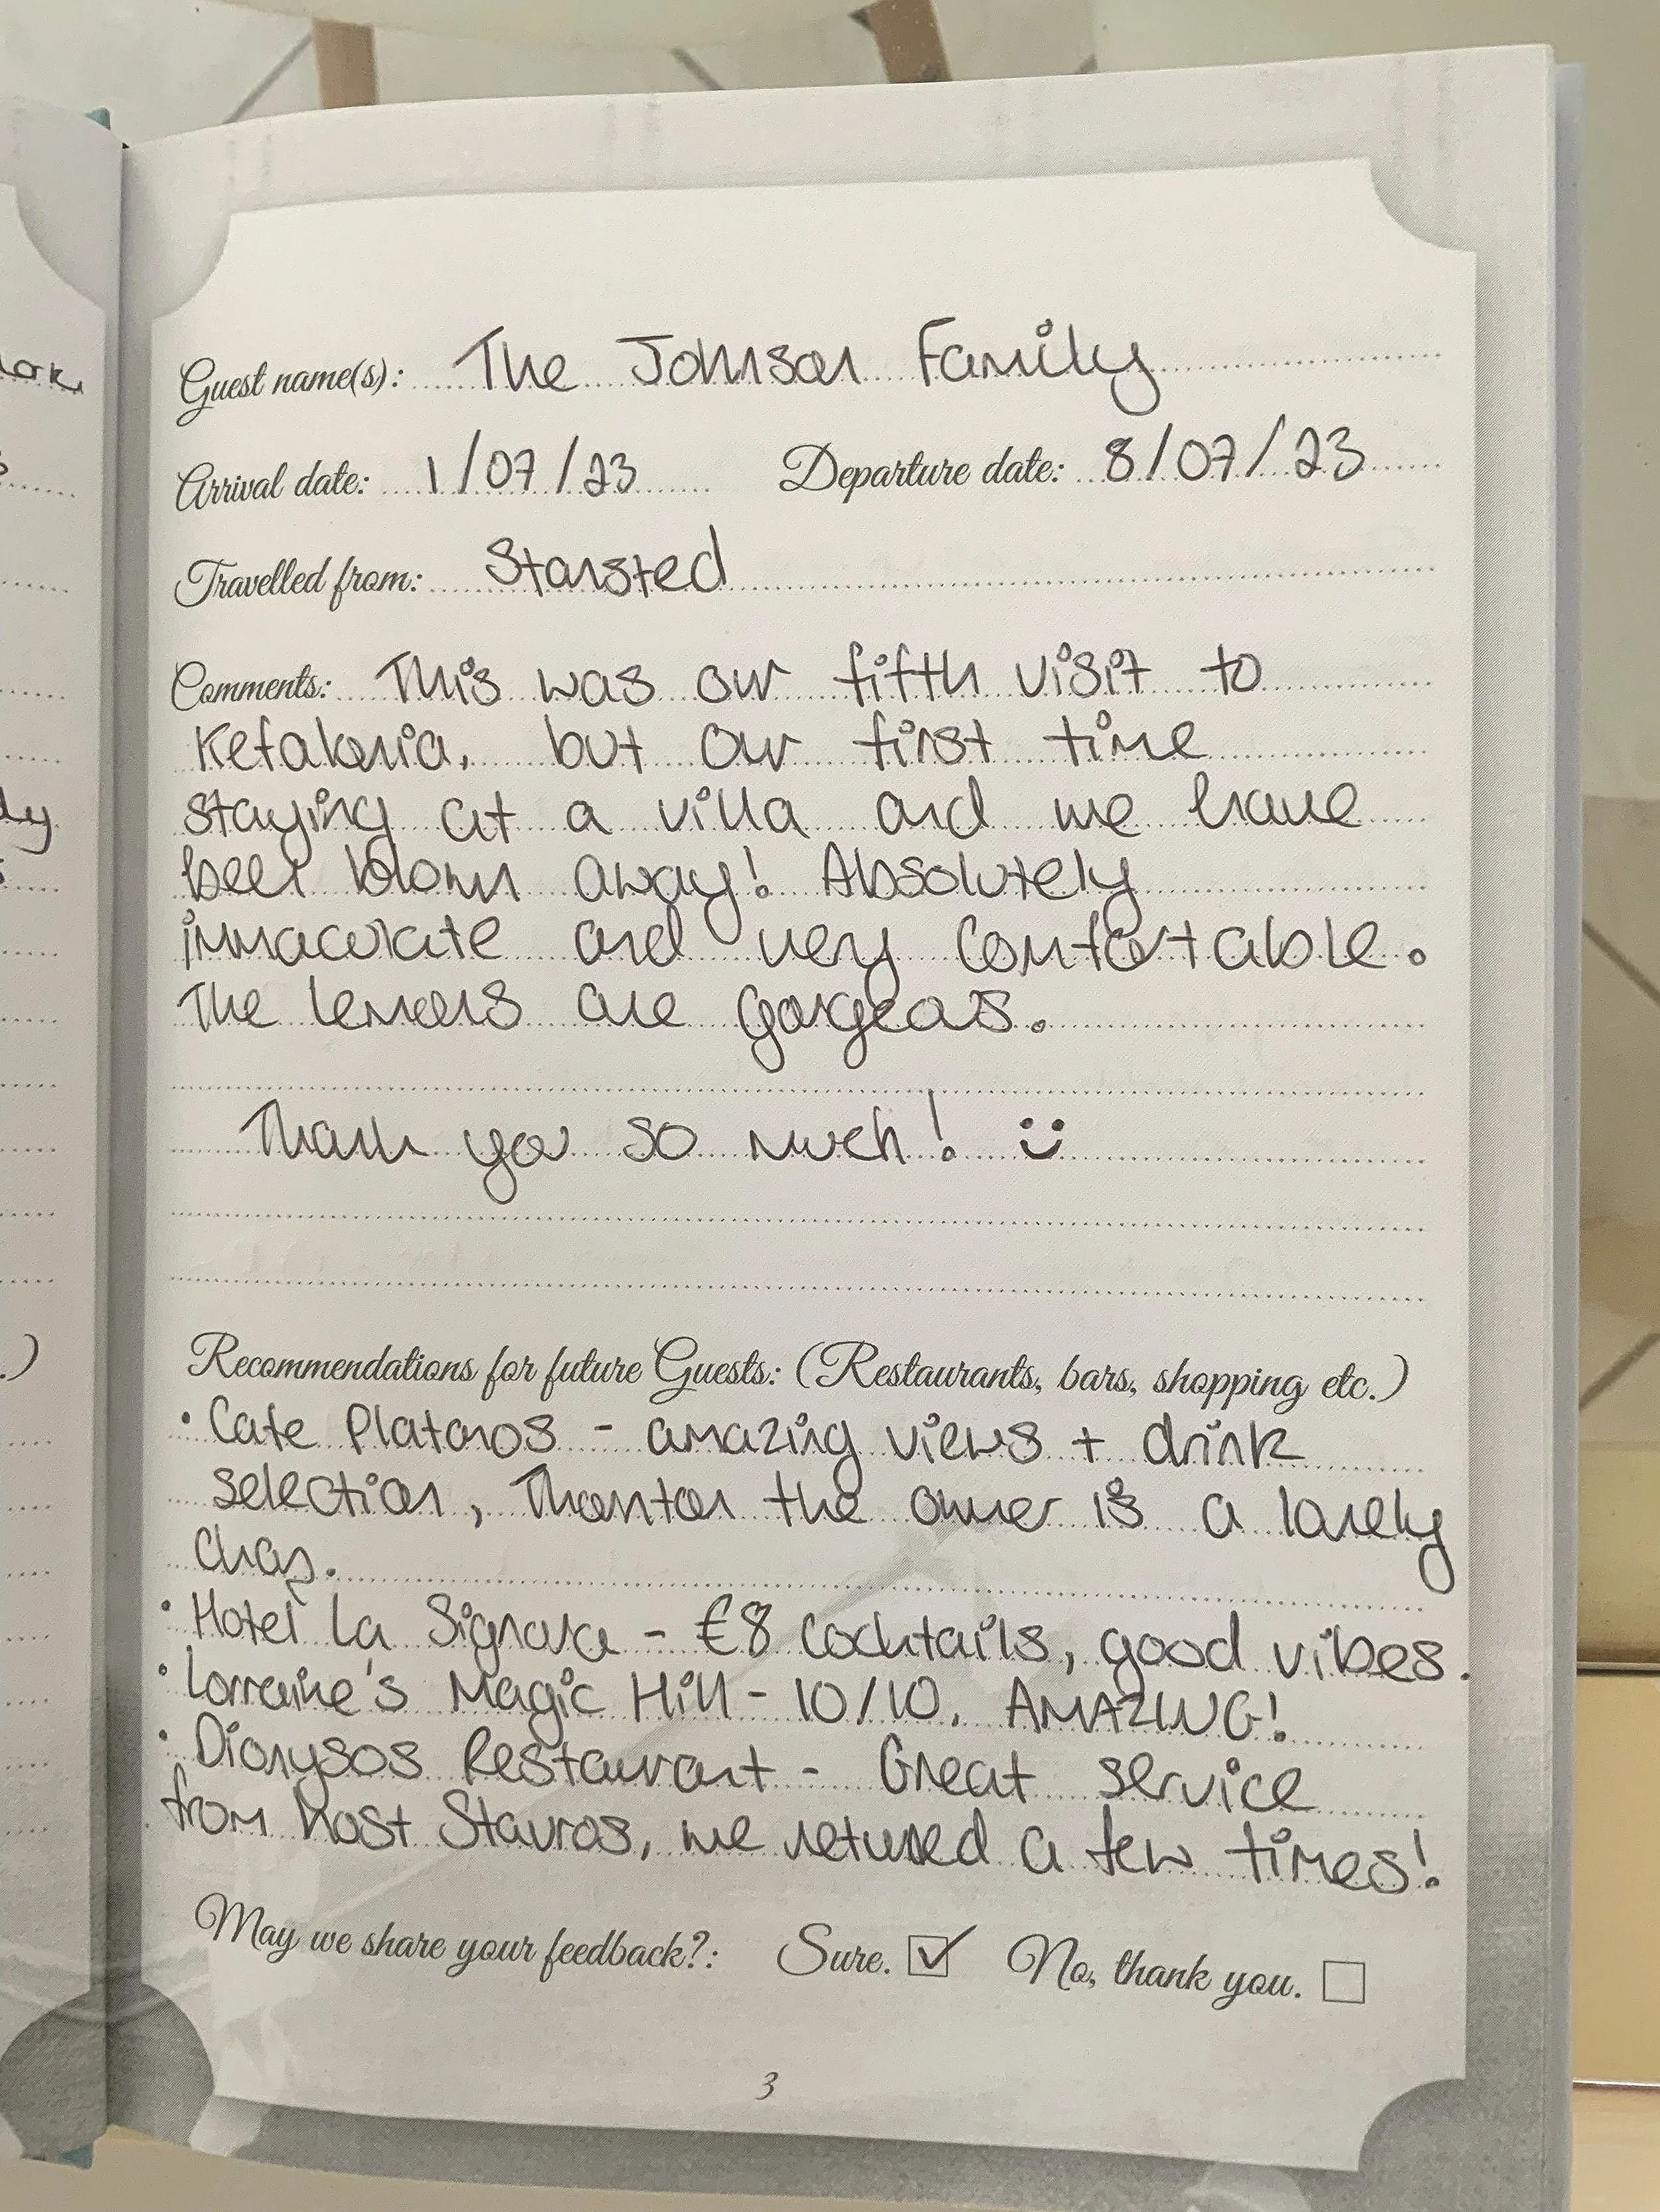 Guest name(s): The Johnson Family
Arrival date: 1/07/23 Departure date: 8/07/23
Travelled from: Stansted
Comments: This was our fifth visit to
Kefalonia, but our first time
staying at a villa and we have
been blown away! Absolutely
immaculate and very comfortable.
The lemons are gorgeous.
Thank you so much! :)
Recommendations for future Guests: (Restaurants, bars, shopping etc.)
• Cafe Platanos - amazing views + drink
selection, the owner is a lovely
chap.
• Hotel La Signora - €8 cocktails, good vibes.
• Lorraine's Magic Hill - 10/10. AMAZING!
• Dionysos Restaurant - Great service
from host Stavros, we returned a few times!
May we share your feedback?: Sure. ☑ No, thank you. ☐
3